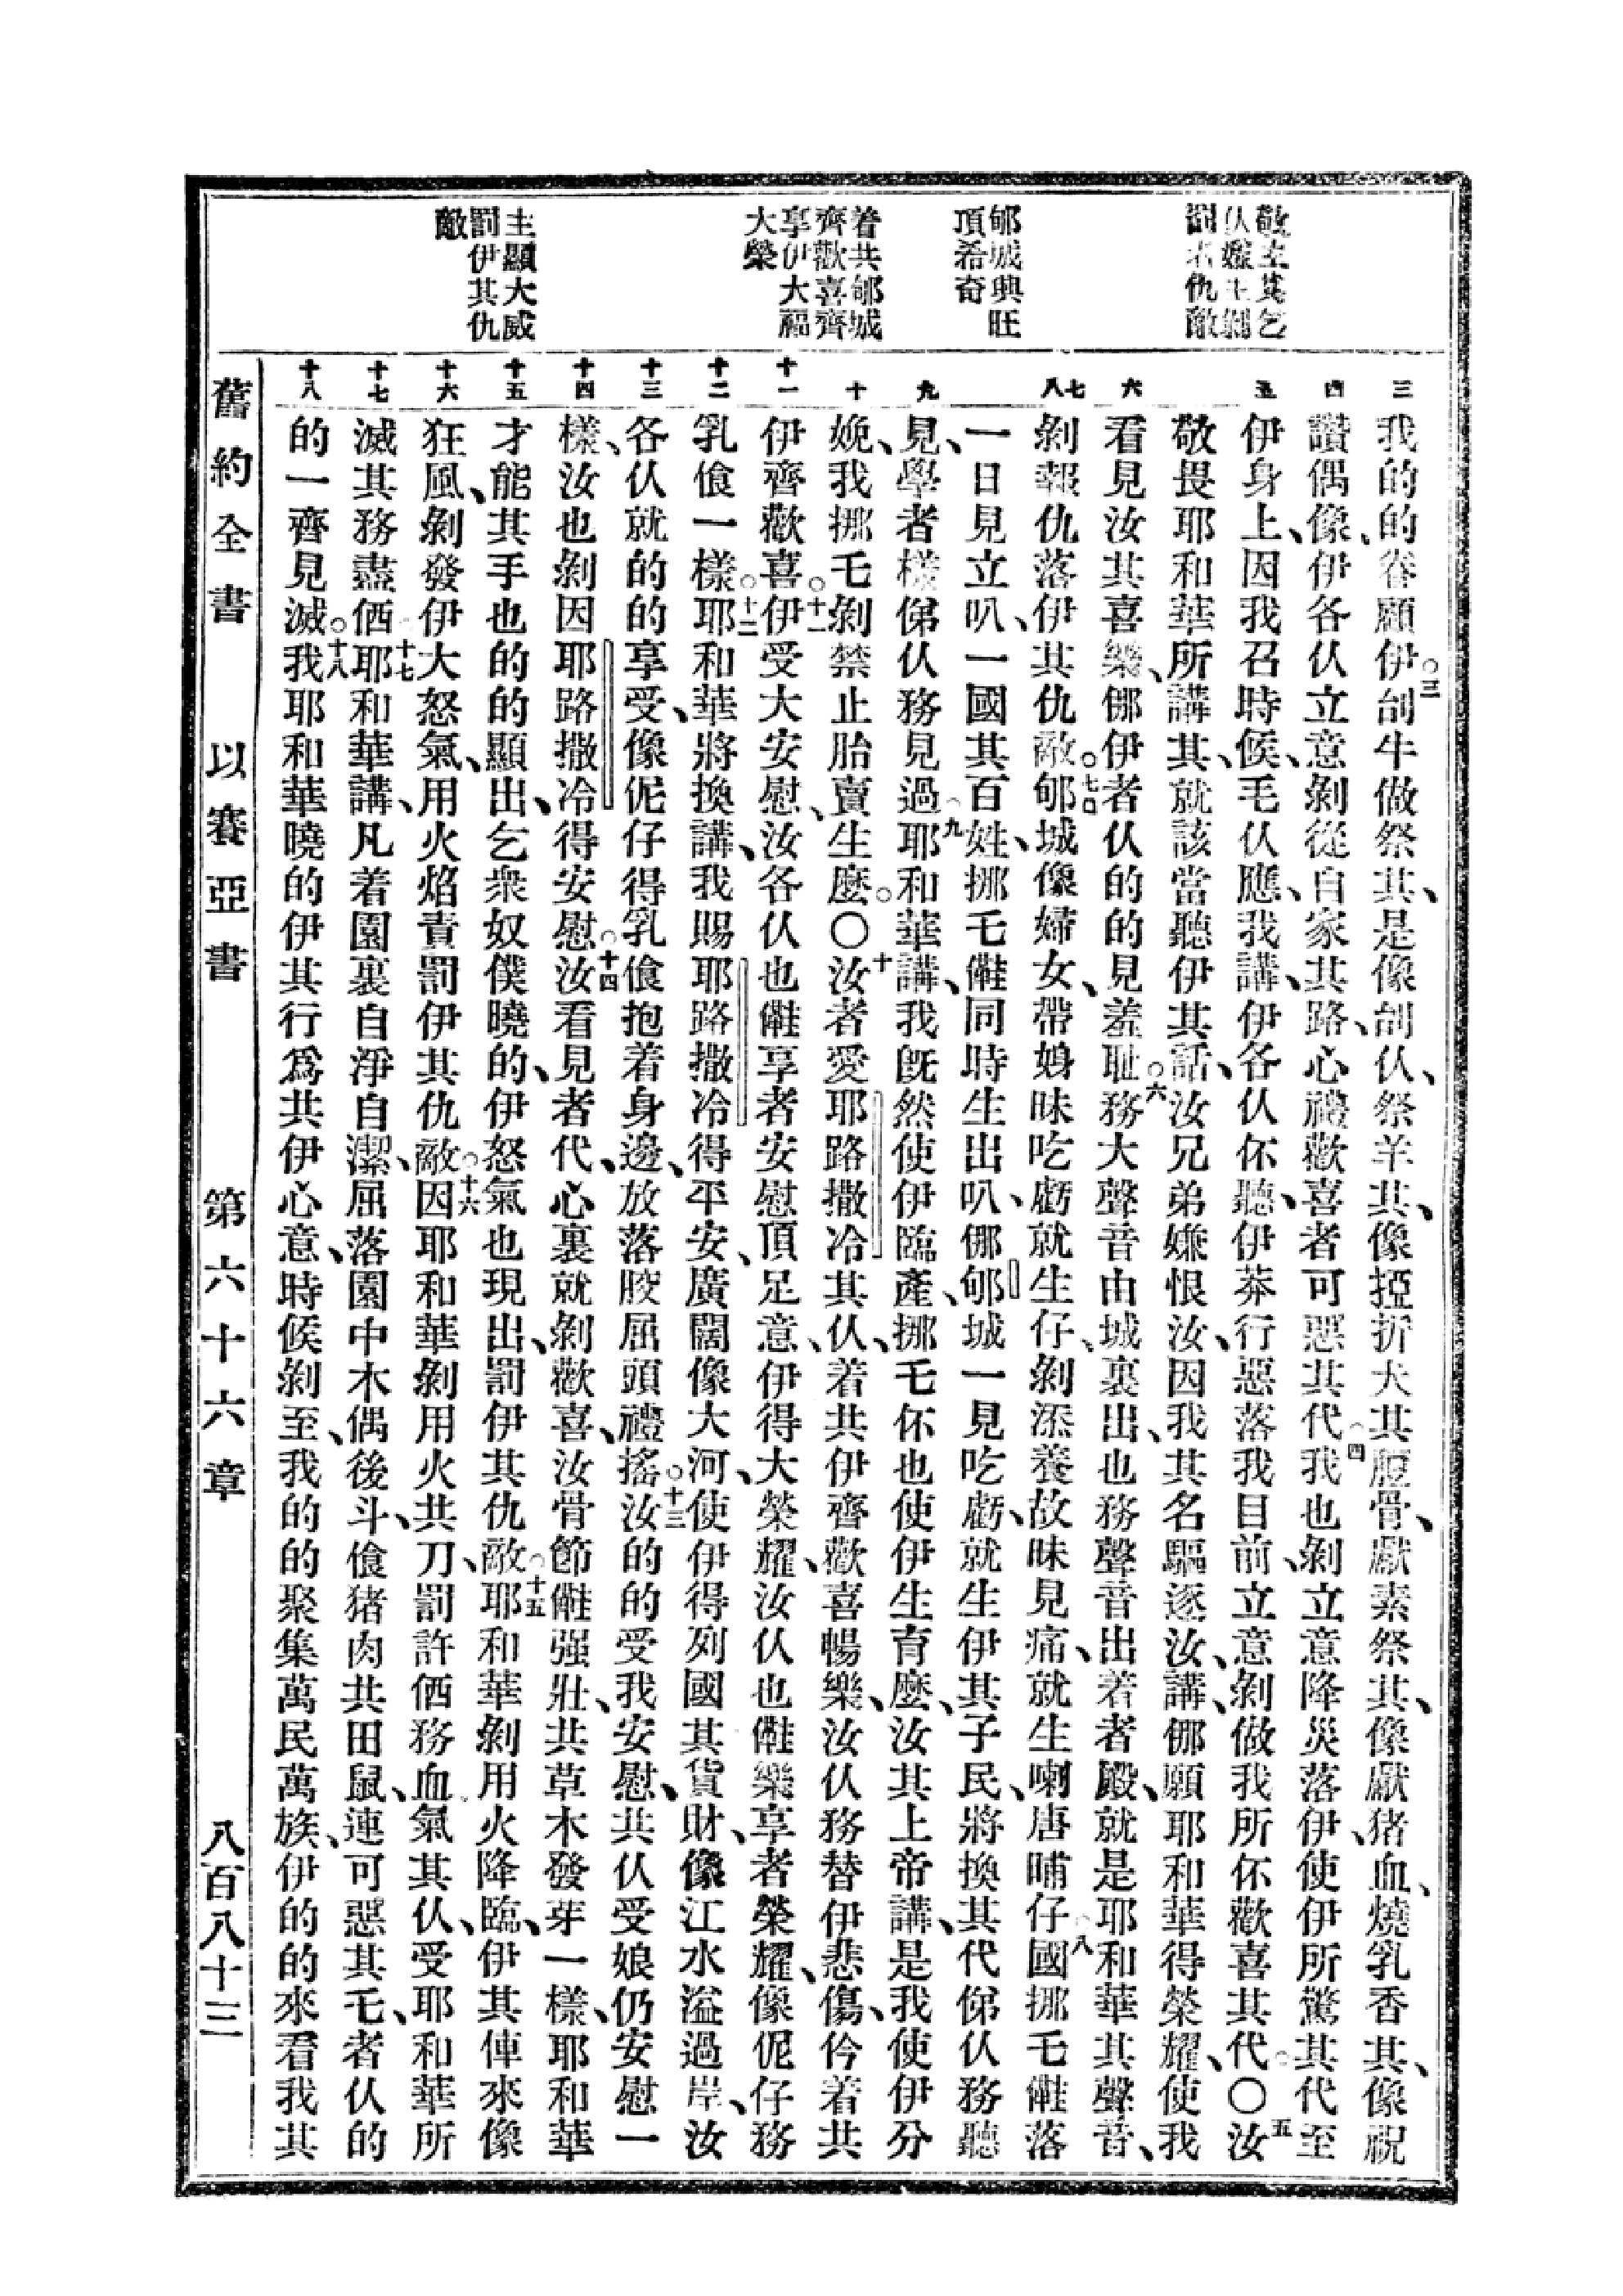 敬主其乞
仇敵
郇城興旺
頂希奇
着共郇城
齊歡喜齊
享伊大福
大榮
主顯大威
罰伊其仇
敵
三
四
五
六
七
八
九
十
十一
十二
十三
十四
十五
十六
十七
十八
我的的眷顧伊○三刣牛做祭其、是像刣仈、祭羊其、像挜折犬其脰骨、獻素祭其、像獻猪血、燒乳香其、像祝
讚偶像、伊各仈立意、剝從自家其路、心禮歡喜者可惡其代○四我也剝立意降災落伊、使伊所驚其代至
伊身上、因我召時候、毛仈應、我講、伊各仈伓聽、伊莽行惡落我目前、立意剝做我所伓歡喜其代○五汝
敬畏耶和華所講其、就該當聽伊其話、汝兄弟嫌恨汝、因我其名驅逐汝、講、㑚願耶和華得榮耀、使我
看見汝其喜樂、㑚伊者仈的的見羞耻○六務大聲音由城裏出、也務聲音出着者殿、就是耶和華其聲音、
剝報仇落伊其仇敵○七郇城像婦女、帶娚昧吃虧就生仔、剝添養故昧見痛、就生唎唐晡仔○八國挪毛㒓落
一日見立叭、一國其百姓、挪毛㒓同時生出叭、㑚郇城一見吃虧、就生伊其子民、將換其代俤仈務聽
見、學者樣俤仈務見過○九耶和華講、我旣然使伊臨產、挪毛伓也使伊生育麼、汝其上帝講、是我使伊分
娩、我挪毛剝禁止胎賣生麼○十汝者愛耶路撒冷其仈、着共伊齊歡喜暢樂、汝仈務替伊悲傷、仱着共
伊齊歡喜○十一伊受大安慰、汝各仈也㒓享者安慰頂足意、伊得大榮耀、汝仈也㒓樂享者榮耀、像伲仔務
乳飡一樣○十二耶和華將換講、我賜耶路撒冷得平安、廣闊像大河、使伊得列國其貨財、像江水溢過岸、汝
各仈就的的享受、像伲仔得乳飡抱着身邊、放落骹屈頭禮搖○十三汝的的受我安慰、共仈受娘仍安慰一
樣、汝也剝因耶路撒冷得安慰○十四汝看見者代、心裏就剝歡喜、汝骨節㒓强壯、共草木發芽一樣、耶和華
才能其手也的的顯出、乞衆奴僕曉的、伊怒氣也現出、罰伊其仇敵○十五耶和華剝用火降臨、伊其俥來像
狂風、剝發伊大怒氣、用火焰責罰伊其仇敵○十六因耶和華剝用火共刀、罰許㑚務血氣其仈、受耶和華所
滅其務盡㑚○十七耶和華講、凡着園裏自淨自潔、屈落園中木偶後斗、飡猪肉共田鼠、連可惡其乇、者仈的
的一齊見滅○十八我耶和華曉的伊其行爲共伊心意、時候剝至、我的的聚集萬民萬族、伊的的來看我其
舊約全書　以賽亞書　第六十六章　八百八十三